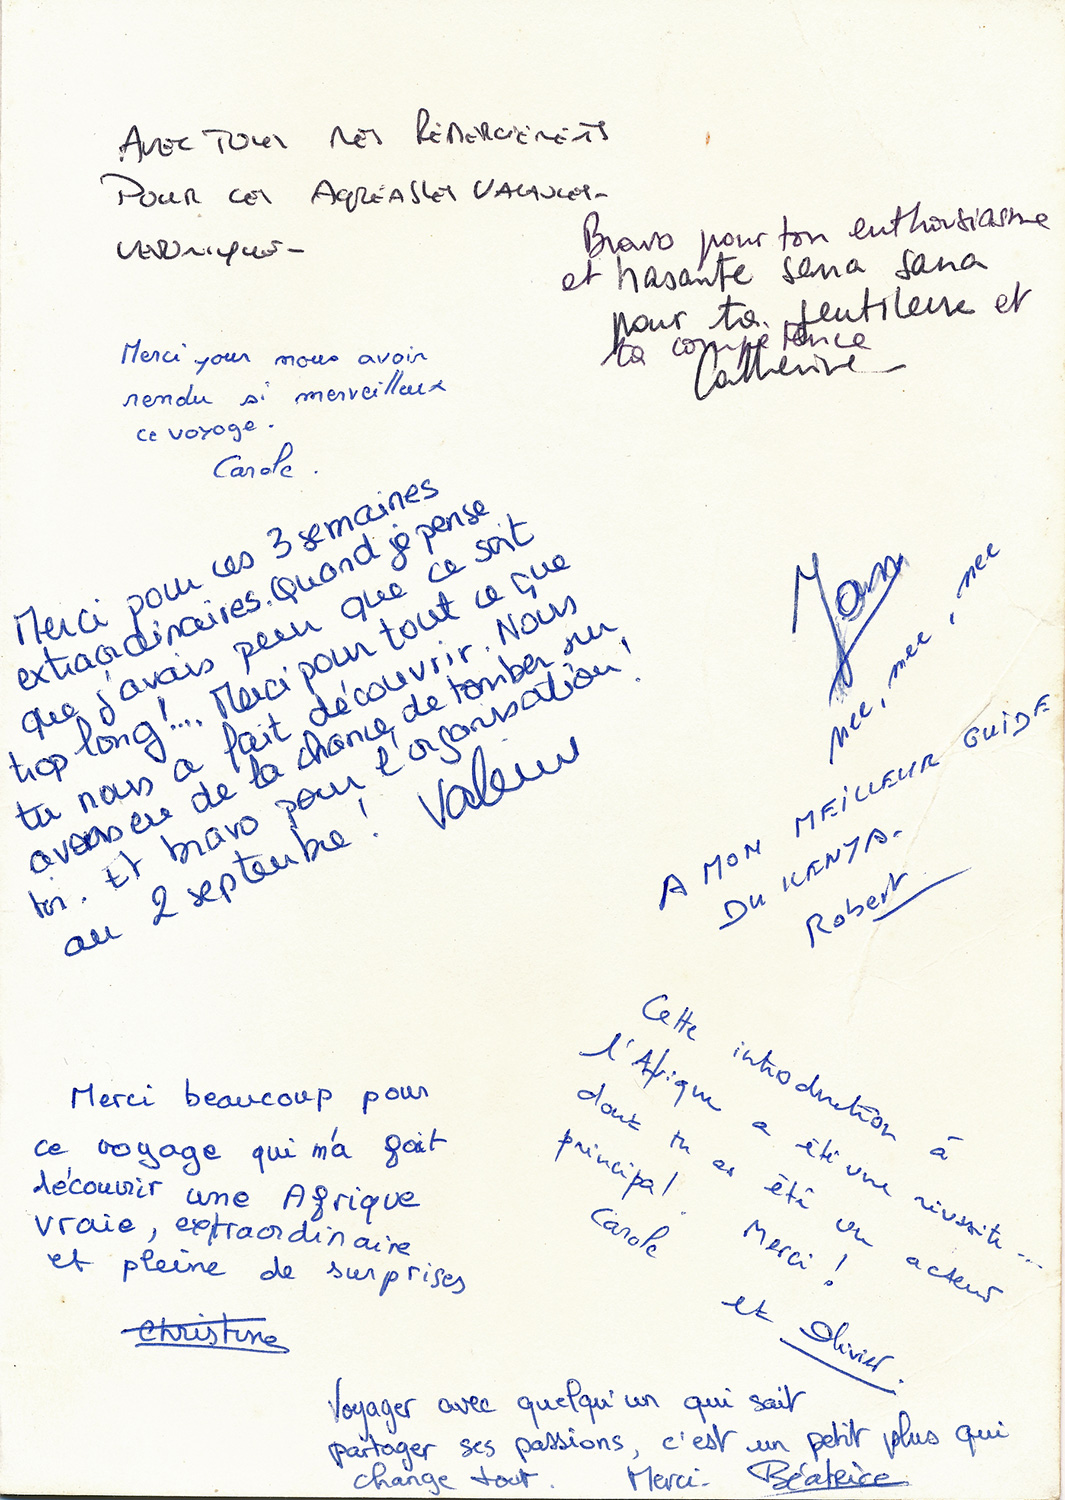 AVEC TOUS MES REMERCIEMENTS
POUR CES AGREABLES VACANCES-
VERONIQUE-
Bravo pour ton enthousiasme
et hasante sana sana
pour ta gentillesse et
ta compétence
Catherine
Merci pour nous avoir
rendu si merveilleux
ce voyage.
Carole.
Merci pour ces 3 semaines
extraordinaires. Quand je pense
que j'avais peur que ce soit
trop long!... Merci pour tout ce que
tu nous a fait découvrir. Nous
avons eu de la chance, de tomber sur
toi. Et bravo pour l'organisation!
au 2 septembre! Valérie
nee, nee, nee, nee
A MON MEILLEUR GUIDE
DU KENYA-
Robert
Cette introduction à
l'Afrique a été une réussite...
dont tu as été un acteur
principal! Merci!
Carole
et Olivier.
Merci beaucoup pour
ce voyage qui m'a fait
découvrir une Afrique
vraie, extraordinaire
et pleine de surprises
Christine
Voyager avec quelqu'un qui sait
partager ses passions, c'est un petit plus qui
change tout. Merci- Béatrice